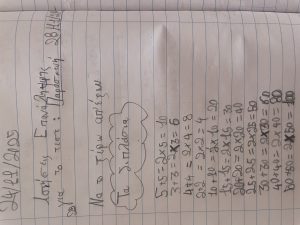 24/11/2025
Ασκήσεις Επανάληψης
για το τεστ: Παρασκευή 28 Νοε
Να τα ξέρω απ' έξω
Τα διπλάσια
5+5=2×5=10
3+3=2×3=6
4+4=2×4=8
2+2=2×2=4
10+10=2×10=20
15+15=2×15=30
20+20=2×20=40
25+25=2×25=50
30+30=2×30=60
40+40=2×40=80
50+50=2×50=100